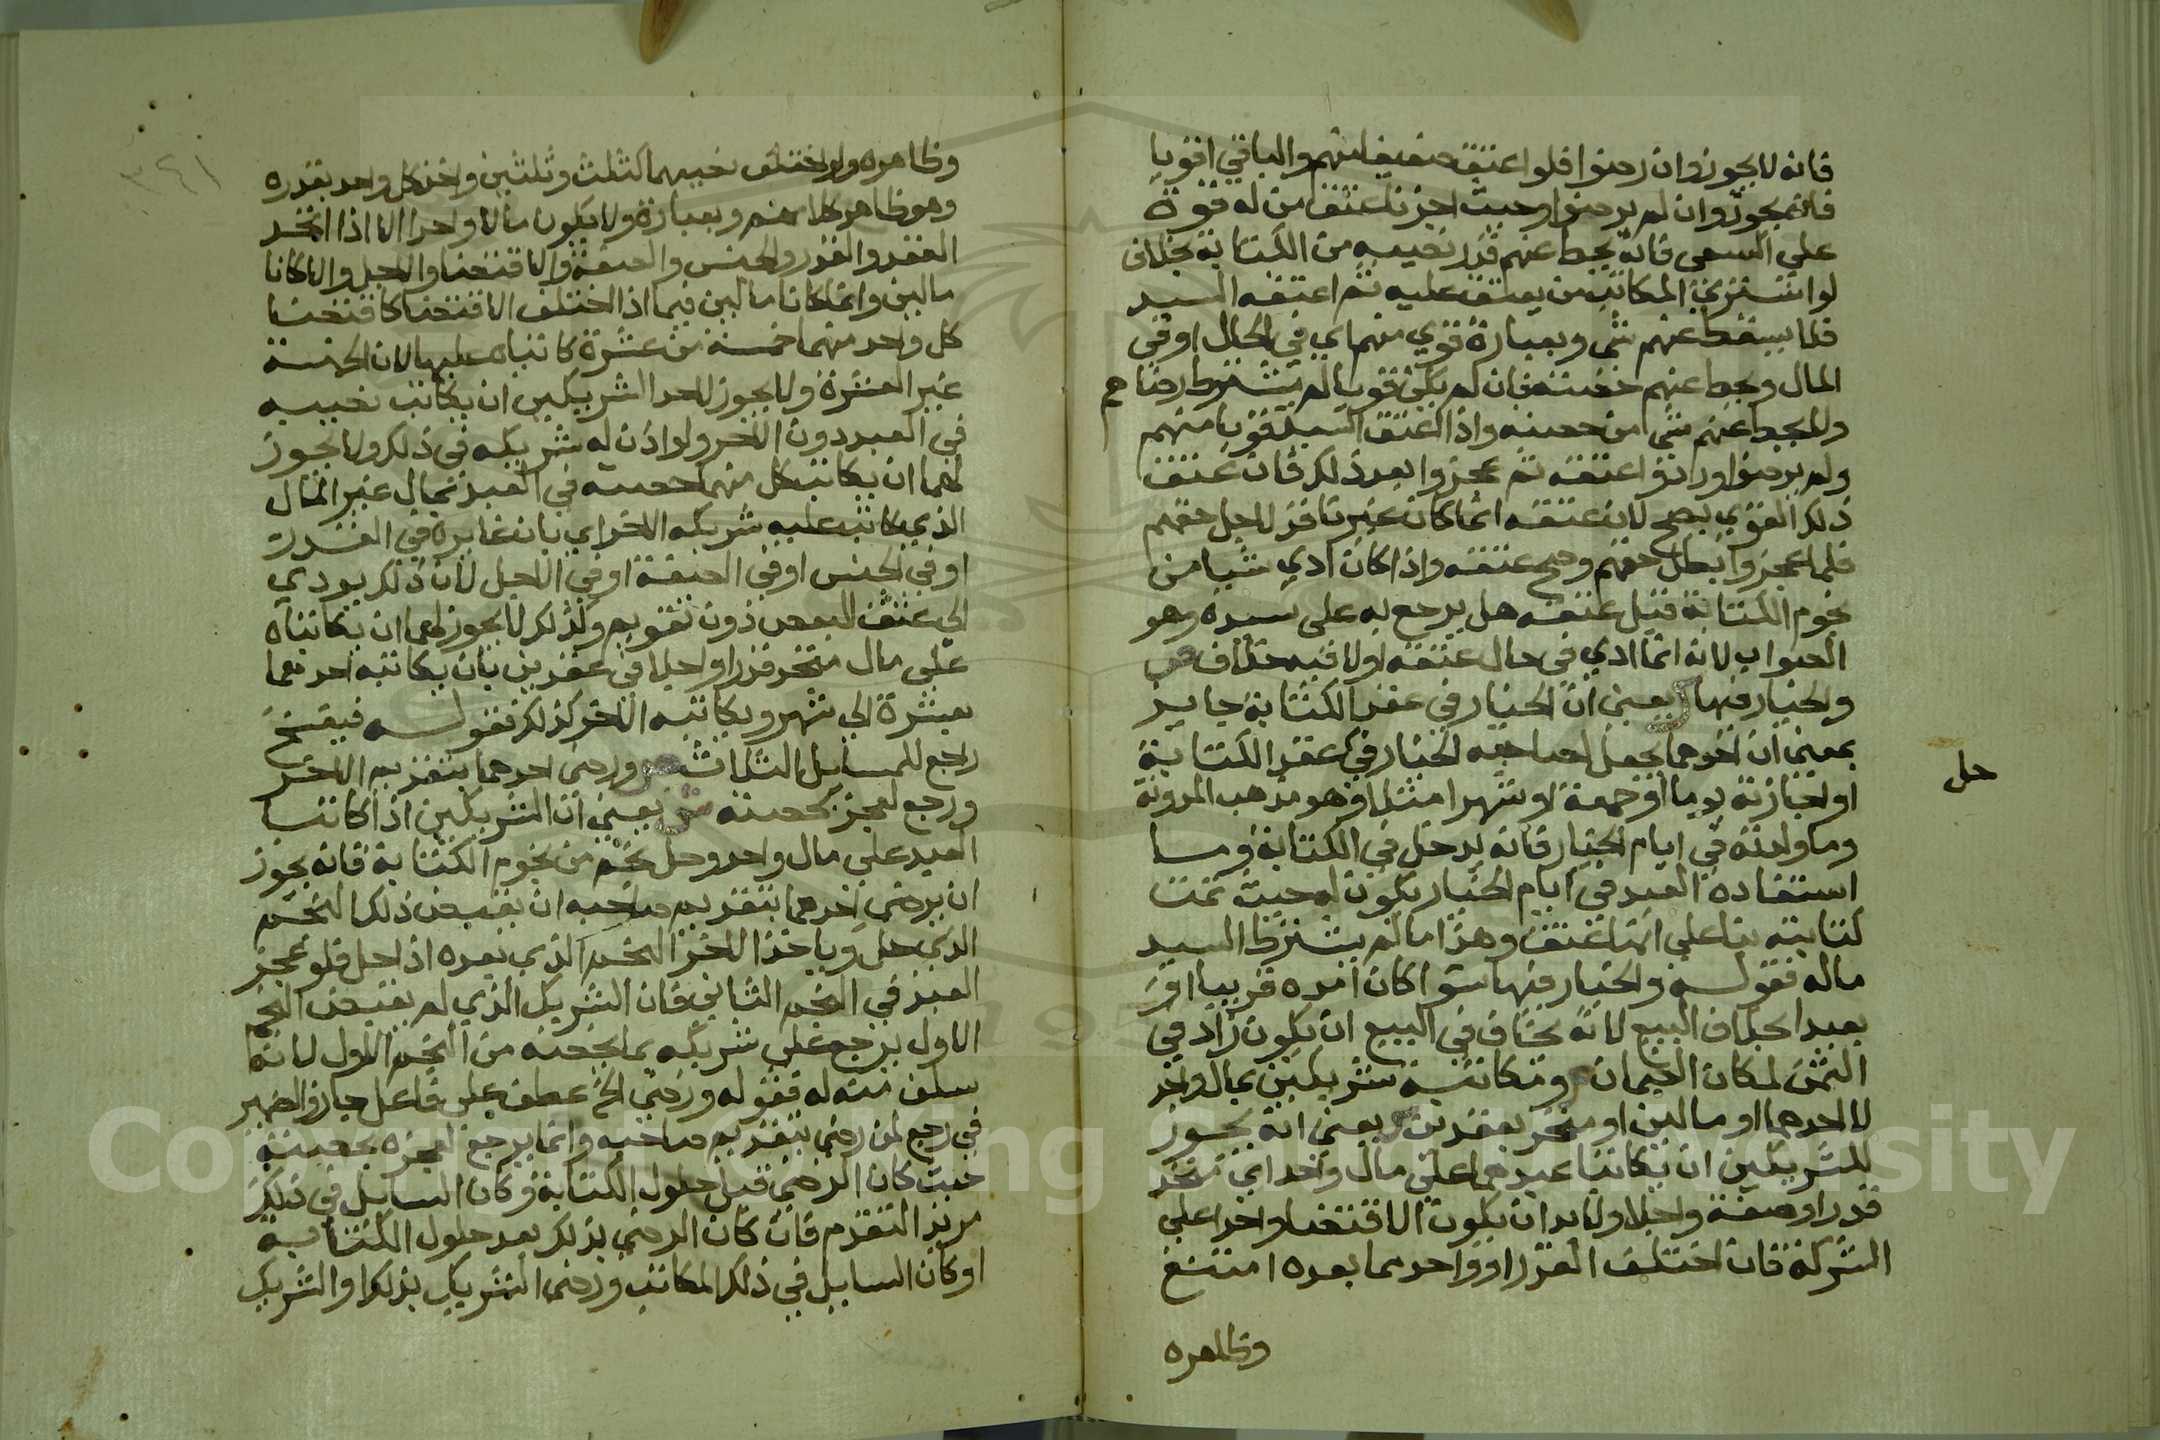 فانه لا يجوز وان رضوا فلو اعتق ضعيفا منهم والباقي اقويا
فانه يجوز وان لم يرضوا وحيث اجزنا عتق من له قوة
علي السعي فانه يحط عنهم قدر نصيبه من الكتابة بخلاف
لو اشتري المكاتب من يعتق عليه ثم اعتقه السيد
فلا يسقط عنهم شي وبعبارة قوي منهم اي في الحال او في
المال ويحط عنهم حصته فان لم يكن قويا لم يشترط رضاهم
ولا يحط عنهم شي من حصته واذا اعتق السيد قويا منهم
ولم يرضوا ورد عتقه ثم عجزوا بعد ذلك فان عتق
ذلك القوي يصح لان عتقه انما كان غير نافذ لاجل حقهم
فلما عجزوا بطل حقهم وصح عتقه واذا كان ادي شيا من
نجوم الكتابة قبل عتقه هل يرجع به علي سيده وهو
الصواب لانه انما ادي في حال عتقه اولا فيه خلاف ص
والخيار فيها ش يعني ان الخيار في عقد الكتابة جايز
بمعني ان احدهما يجعل لصاحبه الخيار في حل عقد الكتابة
او اجازته يوما او جمعة او شهرا مثلا وهو مذهب المدونة
وما ولدته في ايام الخيار فانه يدخل في الكتابة وما
استفاده العبد في ايام الخيار يكون له حيث تمت
كتابته بنا علي انها عتق وهذا ما لم يشترط السيد
ماله فقوله والخيار فيها سوا كان امده قريبا او
بعيدا بخلاف البيع لانه يخاف في البيع ان يكون زاد في
الثمن لمكان الضمان ص ومكاتبة شريكين بمال واحد
لا احدهما او مالين او متحد بعقدين ش يعني انه يجوز
للشريكين ان يكاتبا عبدهما علي مال واحد اي متحد
قدرا وصفة واجلا ولا بد ان يكون الاقتضا واحدا علي
الشركة فان اختلف القدر او واحد مما بعده امتنع
وظاهره
حل
٣٤١
وظاهره ولو اختلف نصيبهما كثلث وثلثين واخذ كل واحد بقدره
وهو ظاهر كلامهم وبعبارة ولا يكون مالا واحدا الا اذا اتحد
العقد والقدر والجنس والصفة والاقتضا والاجل والا كانا
مالين وانما كانا مالين فيما اذا اختلف الاقتضا كاقتضا
كل واحد منهما خمسة من عشرة كاتباه عليها لان الخمسة
غير العشرة ولا يجوز لاحد الشريكين ان يكاتب نصيبه
في العبد دون الاخر ولو اذن له شريكه في ذلك ولا يجوز
لهما ان يكاتب كل منهما حصته في العبد بمال غير المال
الذي كاتب عليه شريكه الاخر اي بان غايره في القدر
او في الجنس او في الصفة او في الاجل لان ذلك يودي
الي عتق البعض دون تقويم ولذلك لا يجوز لهما ان يكاتباه
علي مال متحد قدرا واجلا في عقدين بان يكاتبه احدهما
بعشرة الي شهر ويكاتبه الاخر كذلك فقوله فيفسخ
راجع للمسايل الثلاث ص ورضي احدهما بتقديم الاخر
ورجع لعجز بحصته ش يعني ان الشريكين اذا كاتبا
العبد علي مال واحد وحل نجم من نجوم الكتابة فانه يجوز
ان يرضي احدهما بتقديم صاحبه ان يقبض ذلك النجم
الذي حل وياخذ الاخر النجم الذي بعده اذا حل فلو عجز
العبد في النجم الثاني فان الشريك الذي لم يقبض النجم
الاول يرجع علي شريكه بما يخصه من النجم الاول لانه
سلف منه له فقوله ورضي الخ عطف علي فاعل جاز والضمير
في رجع لمن رضي بتقديم صاحبه وانما يرجع لعجزه بحصته
حيث كان الرضي قبل حلول الكتابة وكان السايل في ذلك
مريد التقدم فان كان الرضي بذلك بعد حلول الكتابة
او كان السايل في ذلك المكاتب ورضي الشريك بذلك او الشريك